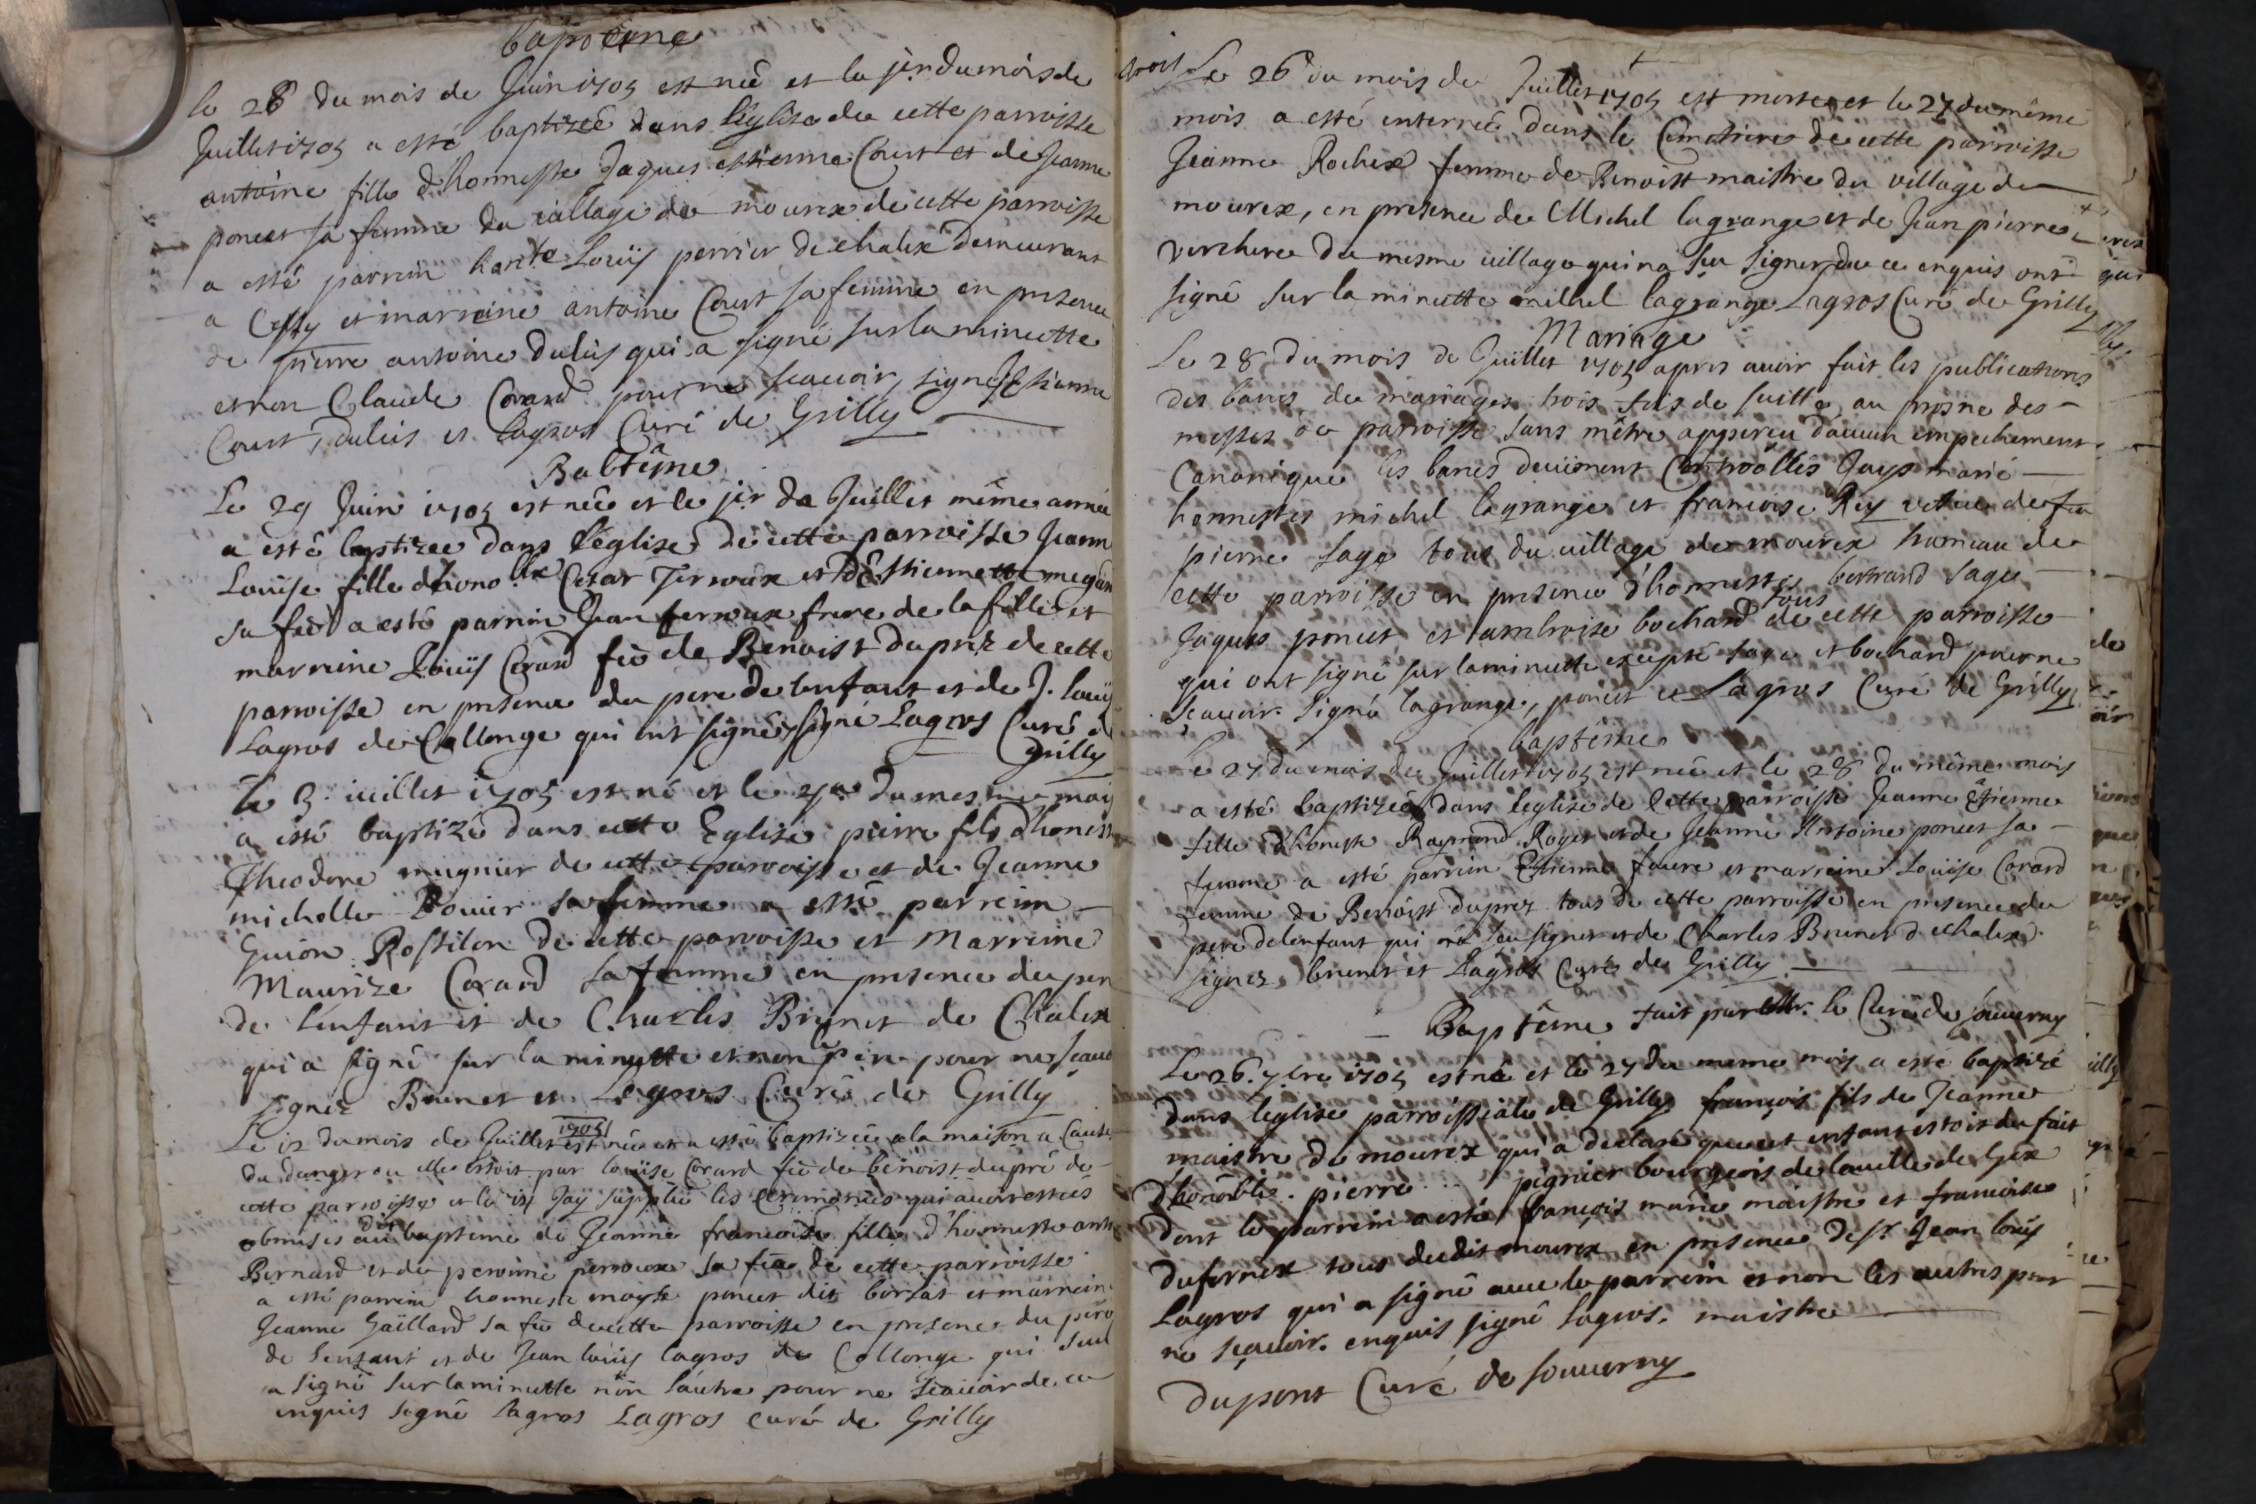 baptême
le 28 du mois de Juin 1705 est née et le jer du mois de
Juillet 1705 a esté baptizeé dans l'Eglise de cette parroisse
antoine fille d'honneste Jaques estienne Court et de Jeanne
poncet sa femme du uillage de mourex de cette parroisse
a esté parrein hon.te Louïs perrier de chalex demeurant
a Cessy et marreine antoine Court sa femme en presence
de pierre antoine duluis qui a signé sur la minutte
et non Claude Corard pour ne scauoir, signé Estienne
Court, duluis et Lagros Curé de Grilly
Babtême
Le 29 Juin 1705 est née et le jer de Juillet même année
a esté baptizee dans l'église de cette parroisse Jeanne
Louïse fille d'hono.ble Cezar Terroux et d'Esthiennette megard
sa fẽ a esté parrin Jean terroux frere de la fille et
marreine Louïs Corard fẽ de Benoist duprez de cette
parroisse en presence du pere de lenfant et de J. Louïs
Lagros de Collonge qui ont signé, signé Lagros Curé de
Grilly
Le 3. iuillet 1705 est né et le du mesme mois
a esté baptizé dans cette Eglise pierre fils d'honeste
Theodore mugnier de cette parroisse et de Jeanne
michelle Bouier sa femme a esté parrein
Guion Rossilon de cette parroisse et Marreine
Maurize Corard sa femme en presence du pere
de l'enfant et de Charles Brunet de Chalex
qui a signé sur la minutte et non le pere pour ne scauoir
signez Brunet et Lagros Curé de Grilly
Le 12 du mois de Juillet 1705 est née et a esté baptizée a la maison a cause
du danger ou elle estoit par louïse Corard fẽ de benoist dupré de
cette parroisse et le Jay supplée les ceremonies qui auoit estées
obmises au baptême de Jeanne francoise fille d'honneste
Bernard et de peronne perroux sa fẽ de cette parroisse
a esté parrein honneste moyse poncet dit borsat et marreine
Jeanne Gaillard sa fẽ de cette parroisse en presence du pere
de l'enfant et de Jean louïs lagros de Collonge qui seul
a signé sur la minutte non l'autre pour ne scauoir de ce
enquis signé Lagros Lagros curé de Grilly
Le 26 du mois de Juillet 1705 est morte et le 27 du même
mois a esté enterreé dans le Cimetiere de cette parroisse
Jeanne Rochex femme de Benoist maistre du village de
mourex, en presence de Michel lagrange et de Jean pierre
verchere du mesme uillage qui na sçu signer, de ce enquis ont
signé sur la minutte michel lagrange Lagros Curé de Grilly
Mariage
Le 28 du mois de Juillet 1705 apres auoir fait les publications
des bancs de mariages trois fois de suitte au prosne des
messes de parroisse sans m'être apperceu d'aucun empechement
Canonique les bancs deuëment Controollés J'ay marié
honnestes michel lagrange et francoise Rey vefue de feu
pierre sage tous du uillage de mourex hameau de
cette parroisse en presence d'honnestes bertrand sage
Jaques poncet et ambroise bochard tous de cette parroisse
qui ont signé sur la minutte excepté sage et bochard pour ne
scauoir. Signé lagrange, poncet et Lagros Curé de Grilly
baptême
Le 27 du mois de Juillet 1705 est née et le 28 du même mois
a esté baptizeé dans l'eglise de cette parroisse Jeanne Etienne
fille d'honeste Raymond Roger et de Jeanne Antoine poncet sa
femme a esté parrein Etienne faure et marreine Louïse Corard
femme de Benoist duprez tous de cette parroisse en presence du
pere de lenfant qui n'a sçeu signer et de Charles Brunet d'echalex
signez brunet et Lagros Curé de Grilly
Baptême fait par Mr. le Curé de souuerny
Le 26. 7bre 1705 est né et le 27 du meme mois a esté baptizé
dans l'eglise parroissiale de Grilly françois fils de Jeanne
maistre de mourex qui a declaré que cet enfant estoit du fait
d'honorable. pierre pignier bourgeois de la uille de Gex
dont le parrein a esté francois marie maistre et francoise
dufornex tous dudit mourex en presence de Sr. Jean louïs
Lagros qui a signé auec le parrein et non les autres pour
ne sçauoir. enquis signé lagros. maistre
Dupont Curé de souuerny